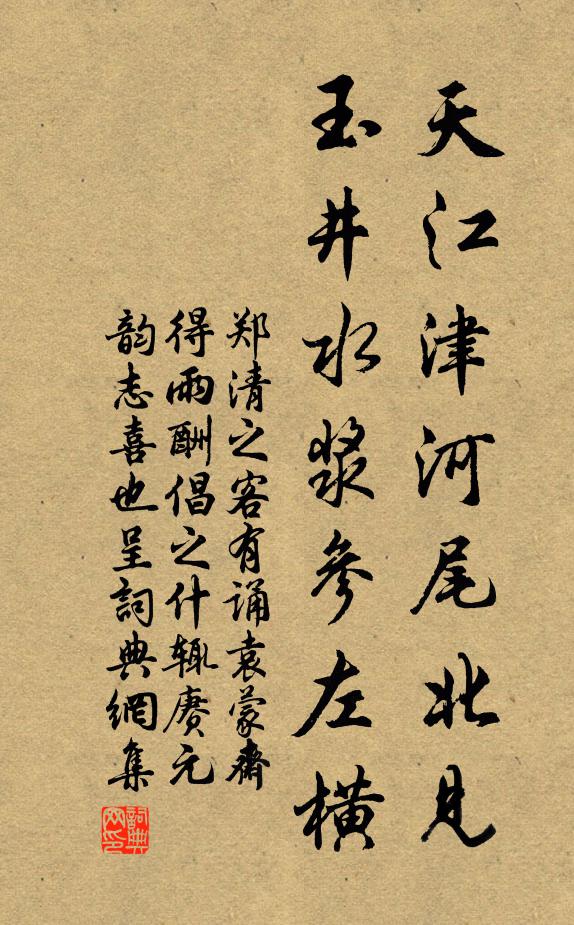 天江津河尾北见
玉井水浆参左横
郑清之客有诵袁蒙齋
得雨酬倡之什辄赓元
韵志喜也呈詞典網集
詞典
网印